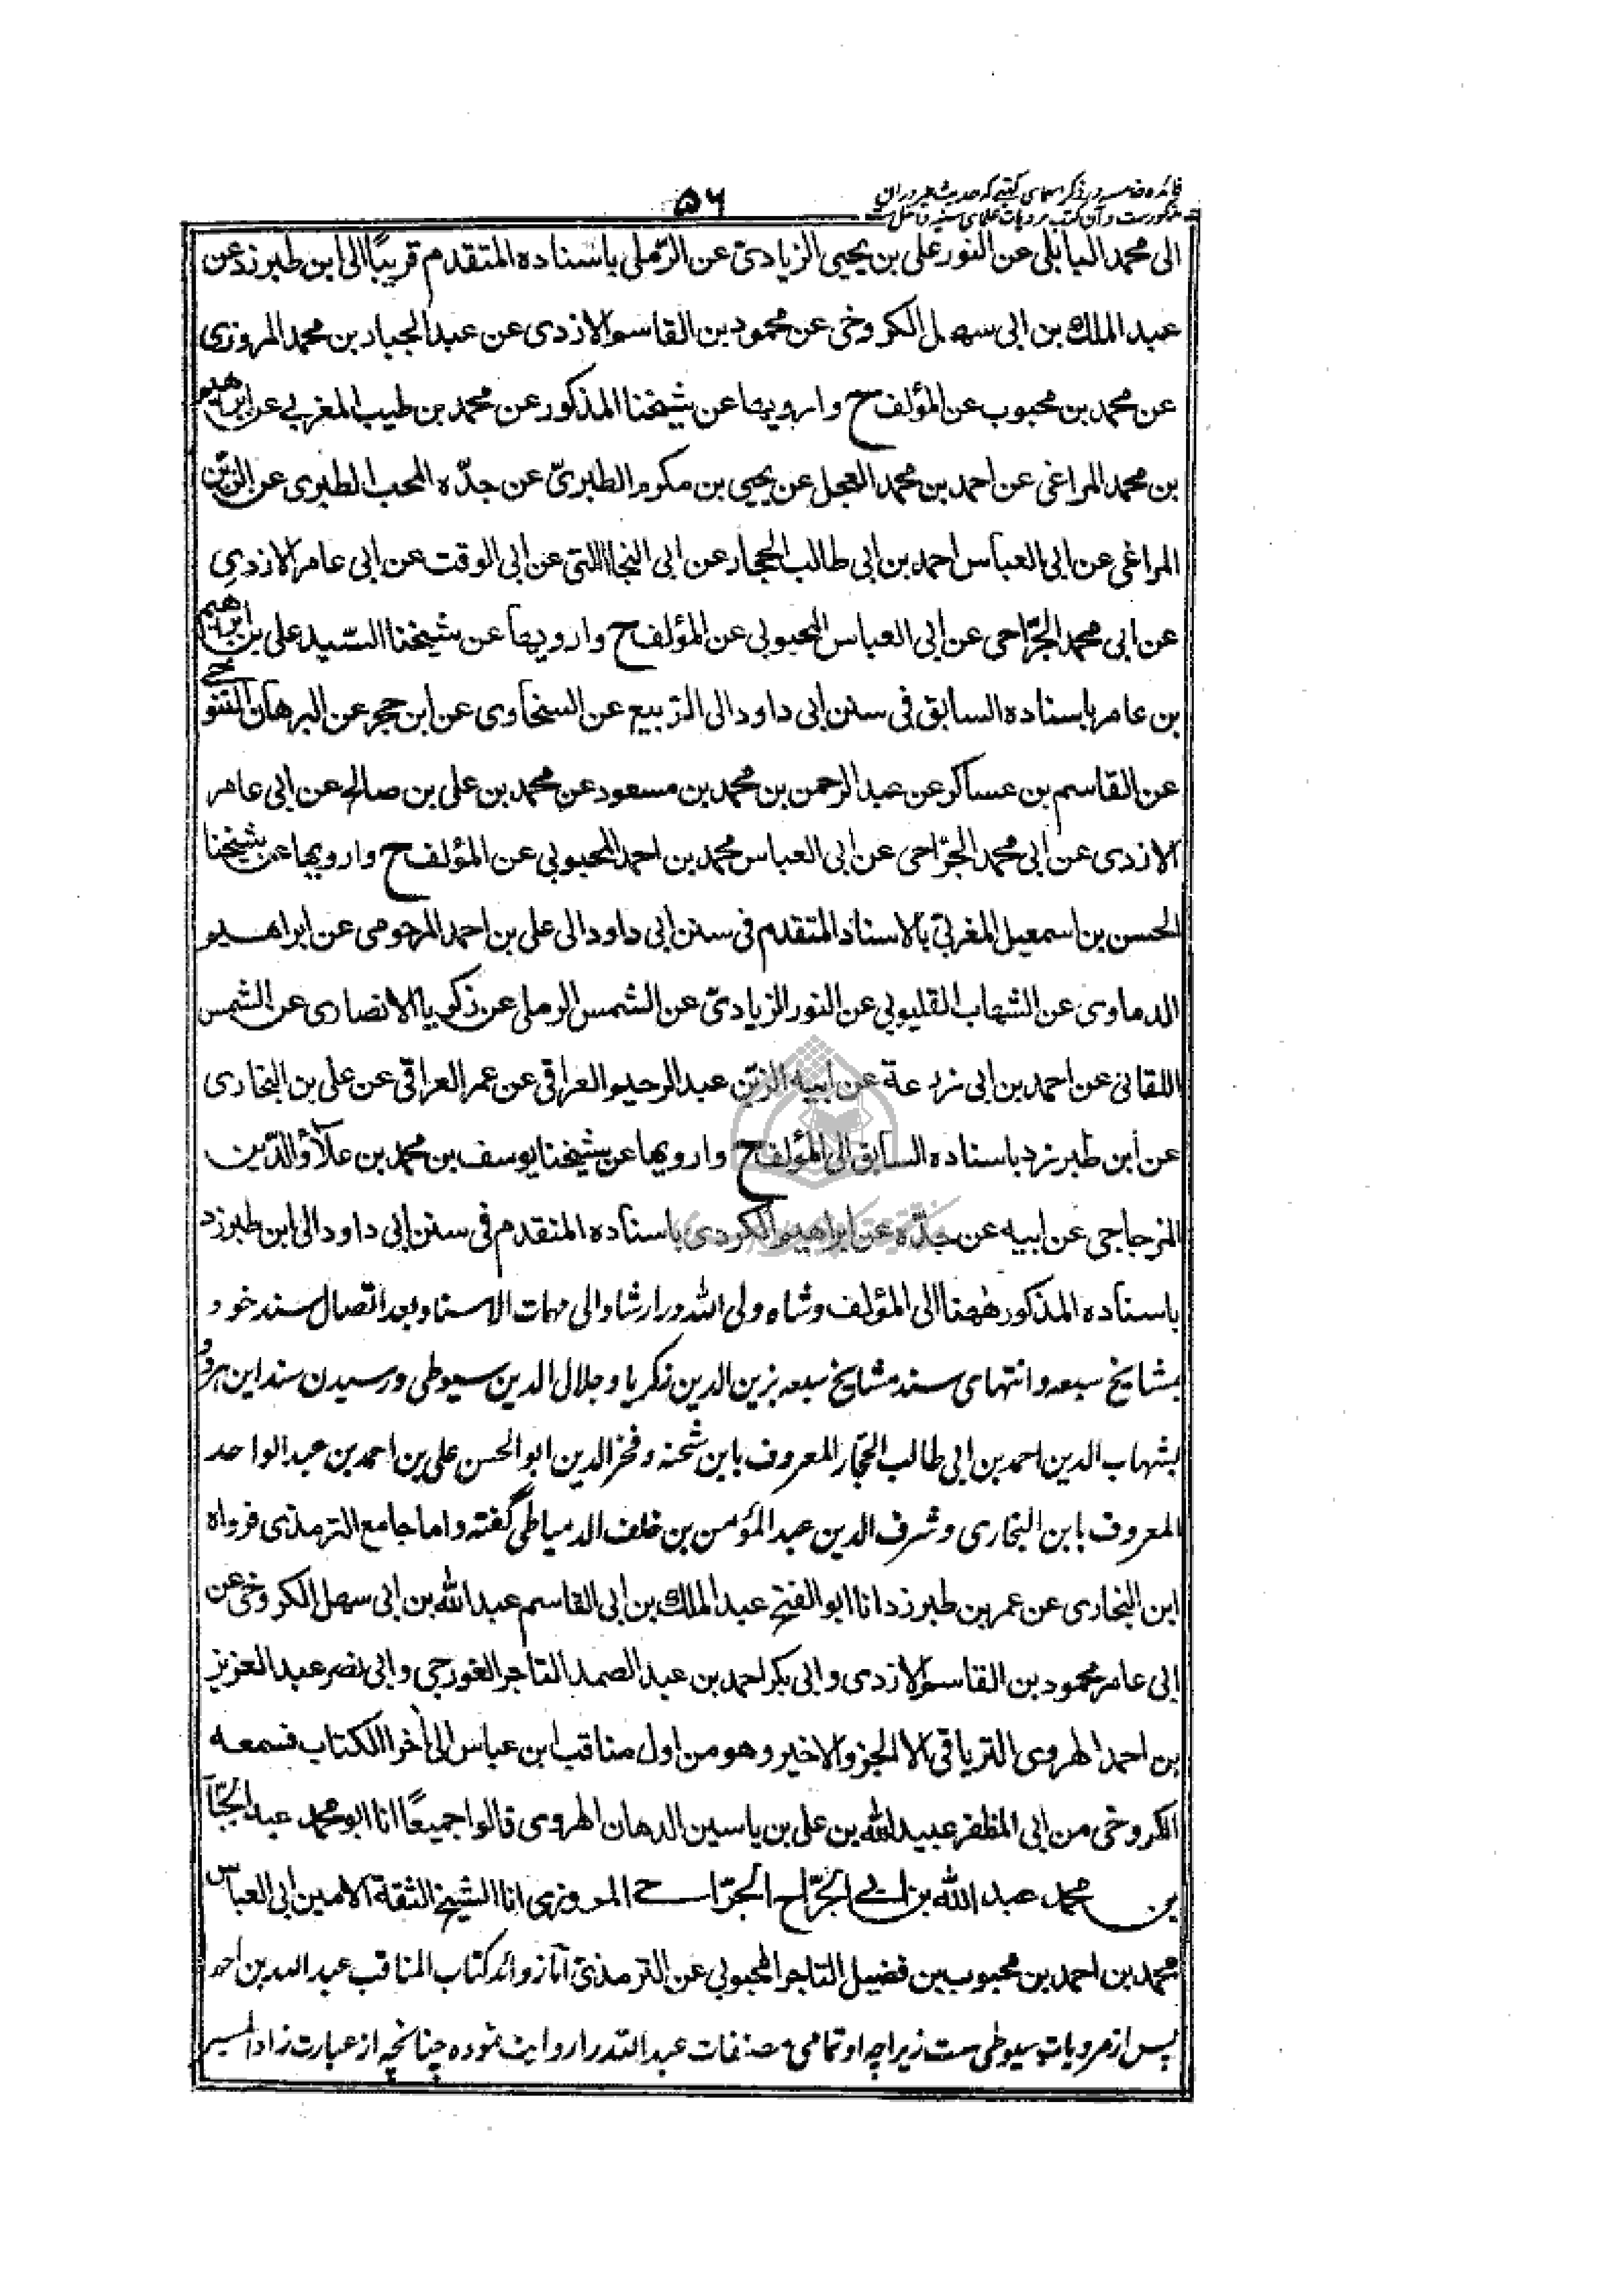 فائده خامسه در ذکر اسمای کتبی که حدیث غدیر دران
مذکورست و آن کتب مرویات علمای سنیه
۵۶
الی محمد البابلی عن النور علی بن یحیی الزیادیّ عن الرّملی باسناده المتقدم قریبًا الی ابن طبرزد عن
عبد الملک بن ابی سهل الکروخی عن محمود بن القاسم الازدی عن عبد الجبار بن محمد المروزی
عن محمد بن محبوب عن المؤلف ح وارویها عن شیخنا المذکور عن محمد بن طیب المغربی عن ابراهیم
بن محمد المراغی عن احمد بن محمد العجل عن یحیی بن مکرم الطبریّ عن جدّه المحب الطبری عن الزین
المراغی عن ابی العباس احمد بن ابی طالب الحجار عن ابی النجا اللتی عن ابی الوقت عن ابی عامر الازدی
عن ابی محمد الجرّاحی عن ابی العباس المحبوبی عن المؤلف ح وارویها عن شیخنا السّید علی بن ابراهیم
بن عامر باسناده السابق فی سنن ابی داود الی الربیع عن السخاوی عن ابن حجر عن البرهان التنوخی
عن القاسم بن عساکر عن عبد الرحمن بن محمد بن مسعود عن محمد بن علی بن صالح عن ابی عامر
الازدی عن ابی محمد الجرّاحی عن ابی العباس محمد بن احمد المحبوبی عن المؤلف ح وارویها عن شیخنا
الحسن بن اسمعیل المغربیّ بالاسناد المتقدم فی سنن ابی داود الی علی بن احمد المرحومی عن ابراهیم
الدماوی عن الشهاب القلیوبی عن النور الزیادیّ عن الشمس الرملی عن زکریا الانصاری عن الشمس
اللقانی عن احمد بن ابی زرعة عن ابیه الزین عبد الرحیم العراقی عن عمر العراقی عن علی بن البخاری
عن ابن طبرزد باسناده السابق الی المؤلف ح وارویها عن شیخنا یوسف بن محمد بن علاؤ الدّین
المزجاجی عن ابیه عن جدّه عن ابراهیم الکردی باسناده المتقدم فی سنن ابی داود الی ابن طبرزد
باسناده المذکور ههنا الی المؤلف و شاه ولی الله در ارشاد الی مهمات الاسناد بعد اتصال سند خود
بمشایخ سبعه و انتهای سند مشایخ سبعه بزین الدین زکریا و جلال الدین سیوطی و رسیدن سند این هر دو
بشهاب الدین احمد بن ابی طالب الحجّار المعروف بابن شحنه و فخر الدین ابو الحسن علی بن احمد بن عبد الواحد
المعروف بابن البخاری و شرف الدین عبد المؤمن بن خلف الدمیاطی گفته و اما جامع الترمذی فرواه
ابن البخاری عن عمر بن طبرزد انا ابو الفتح عبد الملک بن ابی القاسم عبد الله بن ابی سهل الکروخی عن
ابی عامر محمود بن القاسم الازدی و ابی بکر احمد بن عبد الصمد التاجر الغورجی و ابی نصر عبد العزیز
بن احمد الهروی التریاقی الا الجزو الاخیر و هو من اول مناقب ابن عباس الی اخر الکتاب فسمعه
الکروخی من ابی المظفر عبید الله بن علی بن یاسین الدهان الهروی قالوا جمیعًا انا ابو محمد عبد الجبّار
بن محمد عبد الله بن ابی الجرّاح الجرّاحی المروزی انا الشیخ الثقة الامین ابی العباس
محمد بن احمد بن محبوب بن فضیل التاجر المحبوبی عن الترمذیّ اما زوائد کتاب المناقب عبد الله بن احمد
پس از مرویات سیوطی ست زیراچه او تمامی مصنفات عبد الله را روایت نموده چنانچه از عبارت زاد المسیر